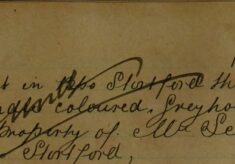 t in this Stortford th
coloured. Greyho
Property of Mr Se
Stortford,